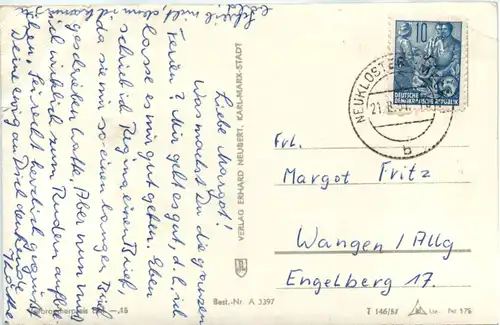 Liebe Margot!
Was machst Du die ganzen
Ferien? Mir geht es gut, d.h. ich
lasse es mir gut gehen. Eben
schrieb ich Regina einen Brief,
da sie mir so einen langen Brief
geschrieben hatte. Aber nun muß
ich wirklich zum Ende
Sei recht herzlich gegrüßt
Deine ewig an Dich denkende
VERLAG ERHARD NEUBERT, KARL-MARX-STADT
Best.-Nr A 3397
10
DEUTSCHE
DEMOKRATISCHE REPUBLIK
NEUKLOSTER
21.8.
b
Frl.
Margot Fritz
Wangen/Allg
Engelberg 17.
T 146/57